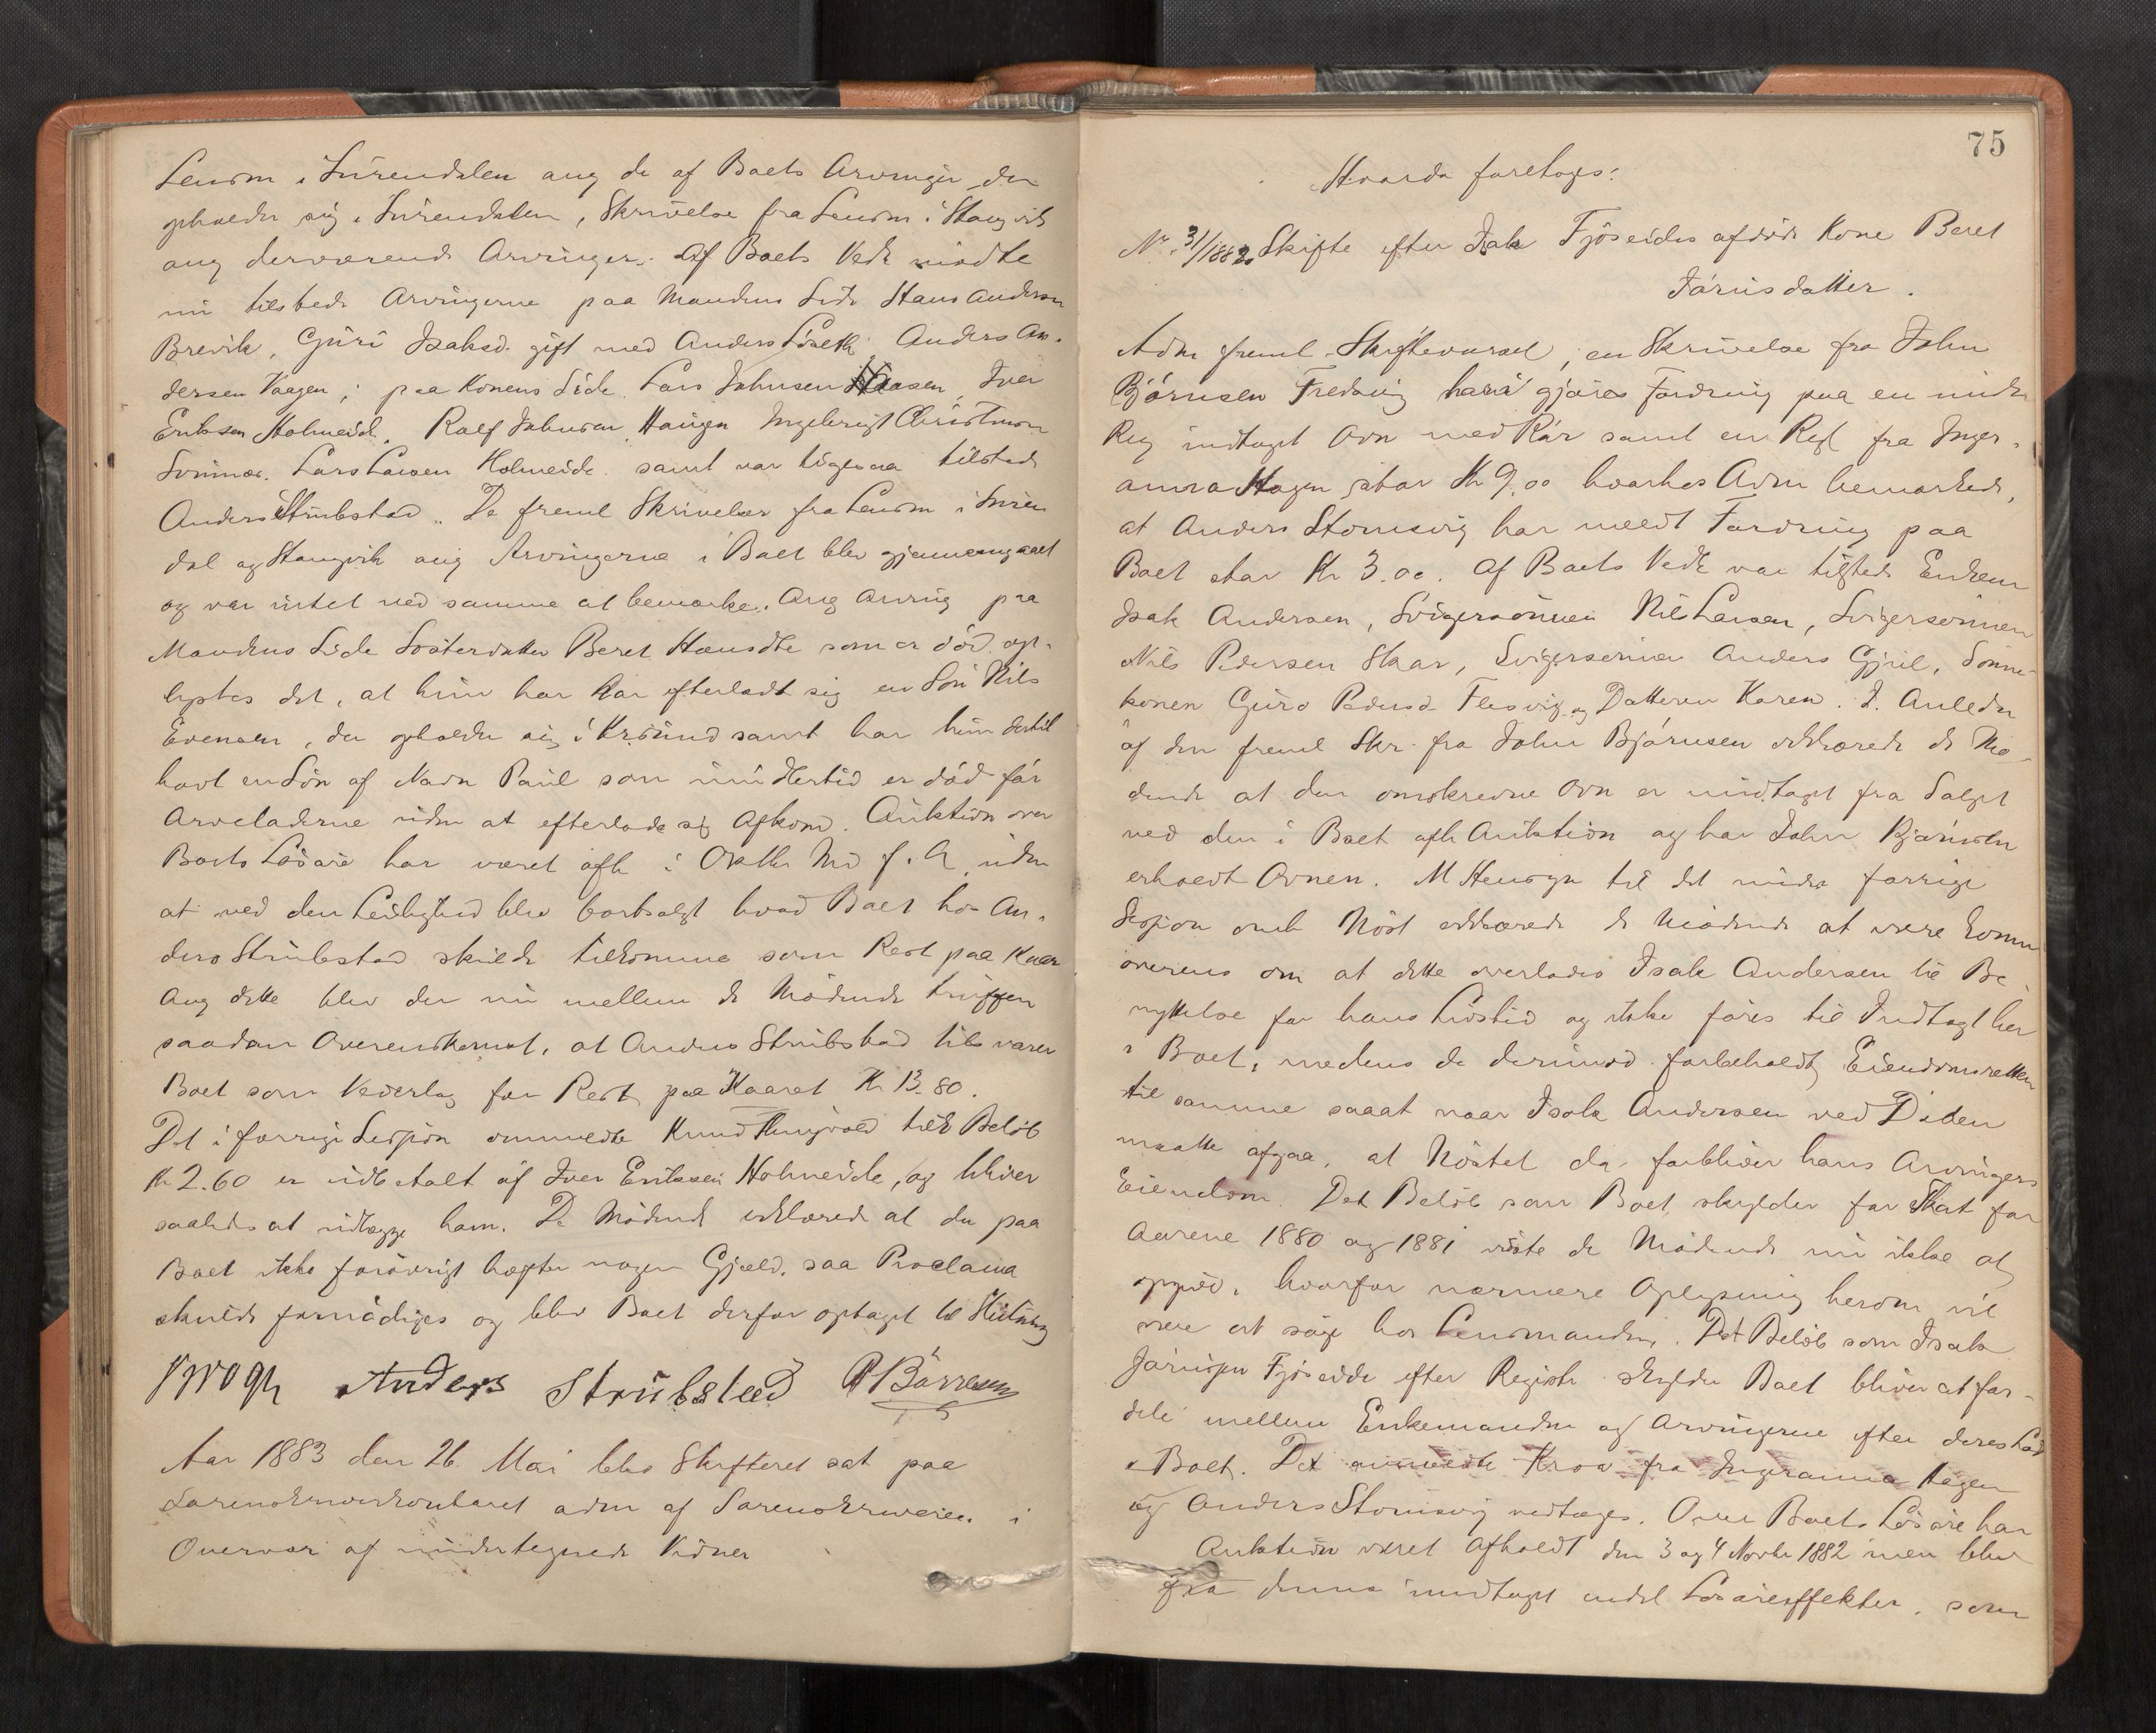 Lensm i Surendalen ang de af Boets Arvinger der
opholder sig i Surendalen, Skrivelse fra Lensm i Stangvik
ang derværende Arvinger. Af Boets Vedk mødte
nu tilstede Arvingerne paa Mandens Side Hans Andersen
Brevik, Guri Isaksd. gift med Anders Anders An-
dersen Vaagen; paa Konens Side Lars Johnsen Aasen, Iver
Eriksen Holmeide, Rolf Johnsen Haugen Ingebrigt Christensen
Lars Larsen Holmeide samt var ligesaa tilstede
Anders Strubstad. De freml Skrivelser fra Lensm i Suren
dal og Stangvik ang Arvingerne i Boet blev gjennemgaaet
og var intet ved samme at bemærke. Ang Arving paa
Mandens Side Søsterdatter Beret Hansdtr som er død op-
lystes det, at hun har efterladt sig en Søn Nils
Evensen, der opholder sig i Krsund samt har hun dertil
havt en Søn af Navn Paul som imidlertid er død før
Arveladerne uden at efterlade sig Afkom. Auktion over
Boets Løsøre har været afh i Oktbr Md f. A. uden
at ved den Leilighed blev bortsolgt hvad Boet hos An-
ders Strubstad skulde tilkomme som Rest paa Kaar
Ang dette blev der nu mellem de Mødende truffen
saadan Overenskomst, at Anders Strubstad tilsvarer
Boet som Vederlag for Rest paa Kaaret Kr 13.80.
Det i forrige Session ommeldte Knud tilk Beløb
Kr 2.60 er udbetalt af Iver Eriksen Holmeide, og bliver
saaledes at udlægge ham. De Mødende erklærede at der paa
Boet ikke forøvrigt hæfter nogen Gjæld, saa Proclama
skulde fornødiges og blev Boet derfor optaget til Slutning
Anders Strubstad Børresen
Aar 1883 den 26. Mai blev Skifteret sat paa
Sorenskriverkontoret adm af Sorenskriveren i
Overvær af undertegnede Vidner
75
Hvorda foretoges:
No 31/1882. Skifte efter Isak Fjøseides afdøde Kone Beret
Jørnsdatter.
Adm freml Skiftevarsel, en Skrivelse fra John
Bjørnsen Fredsvig hvori gjøres Fordring paa en under
Reg indtaget Ovn med Rør samt en Regl fra Inger-
anna Hagen stor Kr 9.00 hvorhos Adm bemærkede,
at Anders Stomsvig har meldt Fordring paa
Boet stor Kr 3.00. Af Boets Vedk var tilstede Enkem
Isak Andersen, Svigersønnen Nils Larsen, Svigersønnen
Nils Pedersen Skar, Svigersønnen Anders Gjul, Sønne-
konen Guro Pedersd Flesvig og Datteren Karen. I Anledn
af den freml Skr fra John Bjørnsen erklærede de Mø-
dende at den omskrevne Ovn er undtaget fra Salget
ved den i Boet afh Auktion og har John Bjørnsen
erholdt Ovnen. M Hensyn til det under forrige
Session omh Nøst erklærede de Mødende at være komne
overens om at dette overlades Isak Andersen til Be-
nyttelse for hans Livstid og ikke føres til Indtægt her
i Boet, medens de derimod forbeholdt Eiendomsretten
til samme saaat naar Isak Andersen ved Døden
maatte afgaa, at Nøstet da forbliver hans Arvingers
Eiendom. Det Beløb som Boet skylder for Skat for
Aarene 1880 og 1881 vidste de Mødende nu ikke at
opgive, hvorfor nærmere Oplysning herom vil
være at søge hos Lensmanden. Det Beløb som Isak
Jørnsen Fjøseide efter Registr skylder Boet bliver at for-
dele mellem Enkemanden og Arvingerne efter deres Lod
i Boet. Det anmeldte Krav fra Ingeranna Hagen
og Anders Stomsvig vedtages. Over Boets Løsøre har
Auktion været afholdt den 3 og 4 Novbr 1882 men blev
fra denne undtaget endel Løsøreeffekter, som